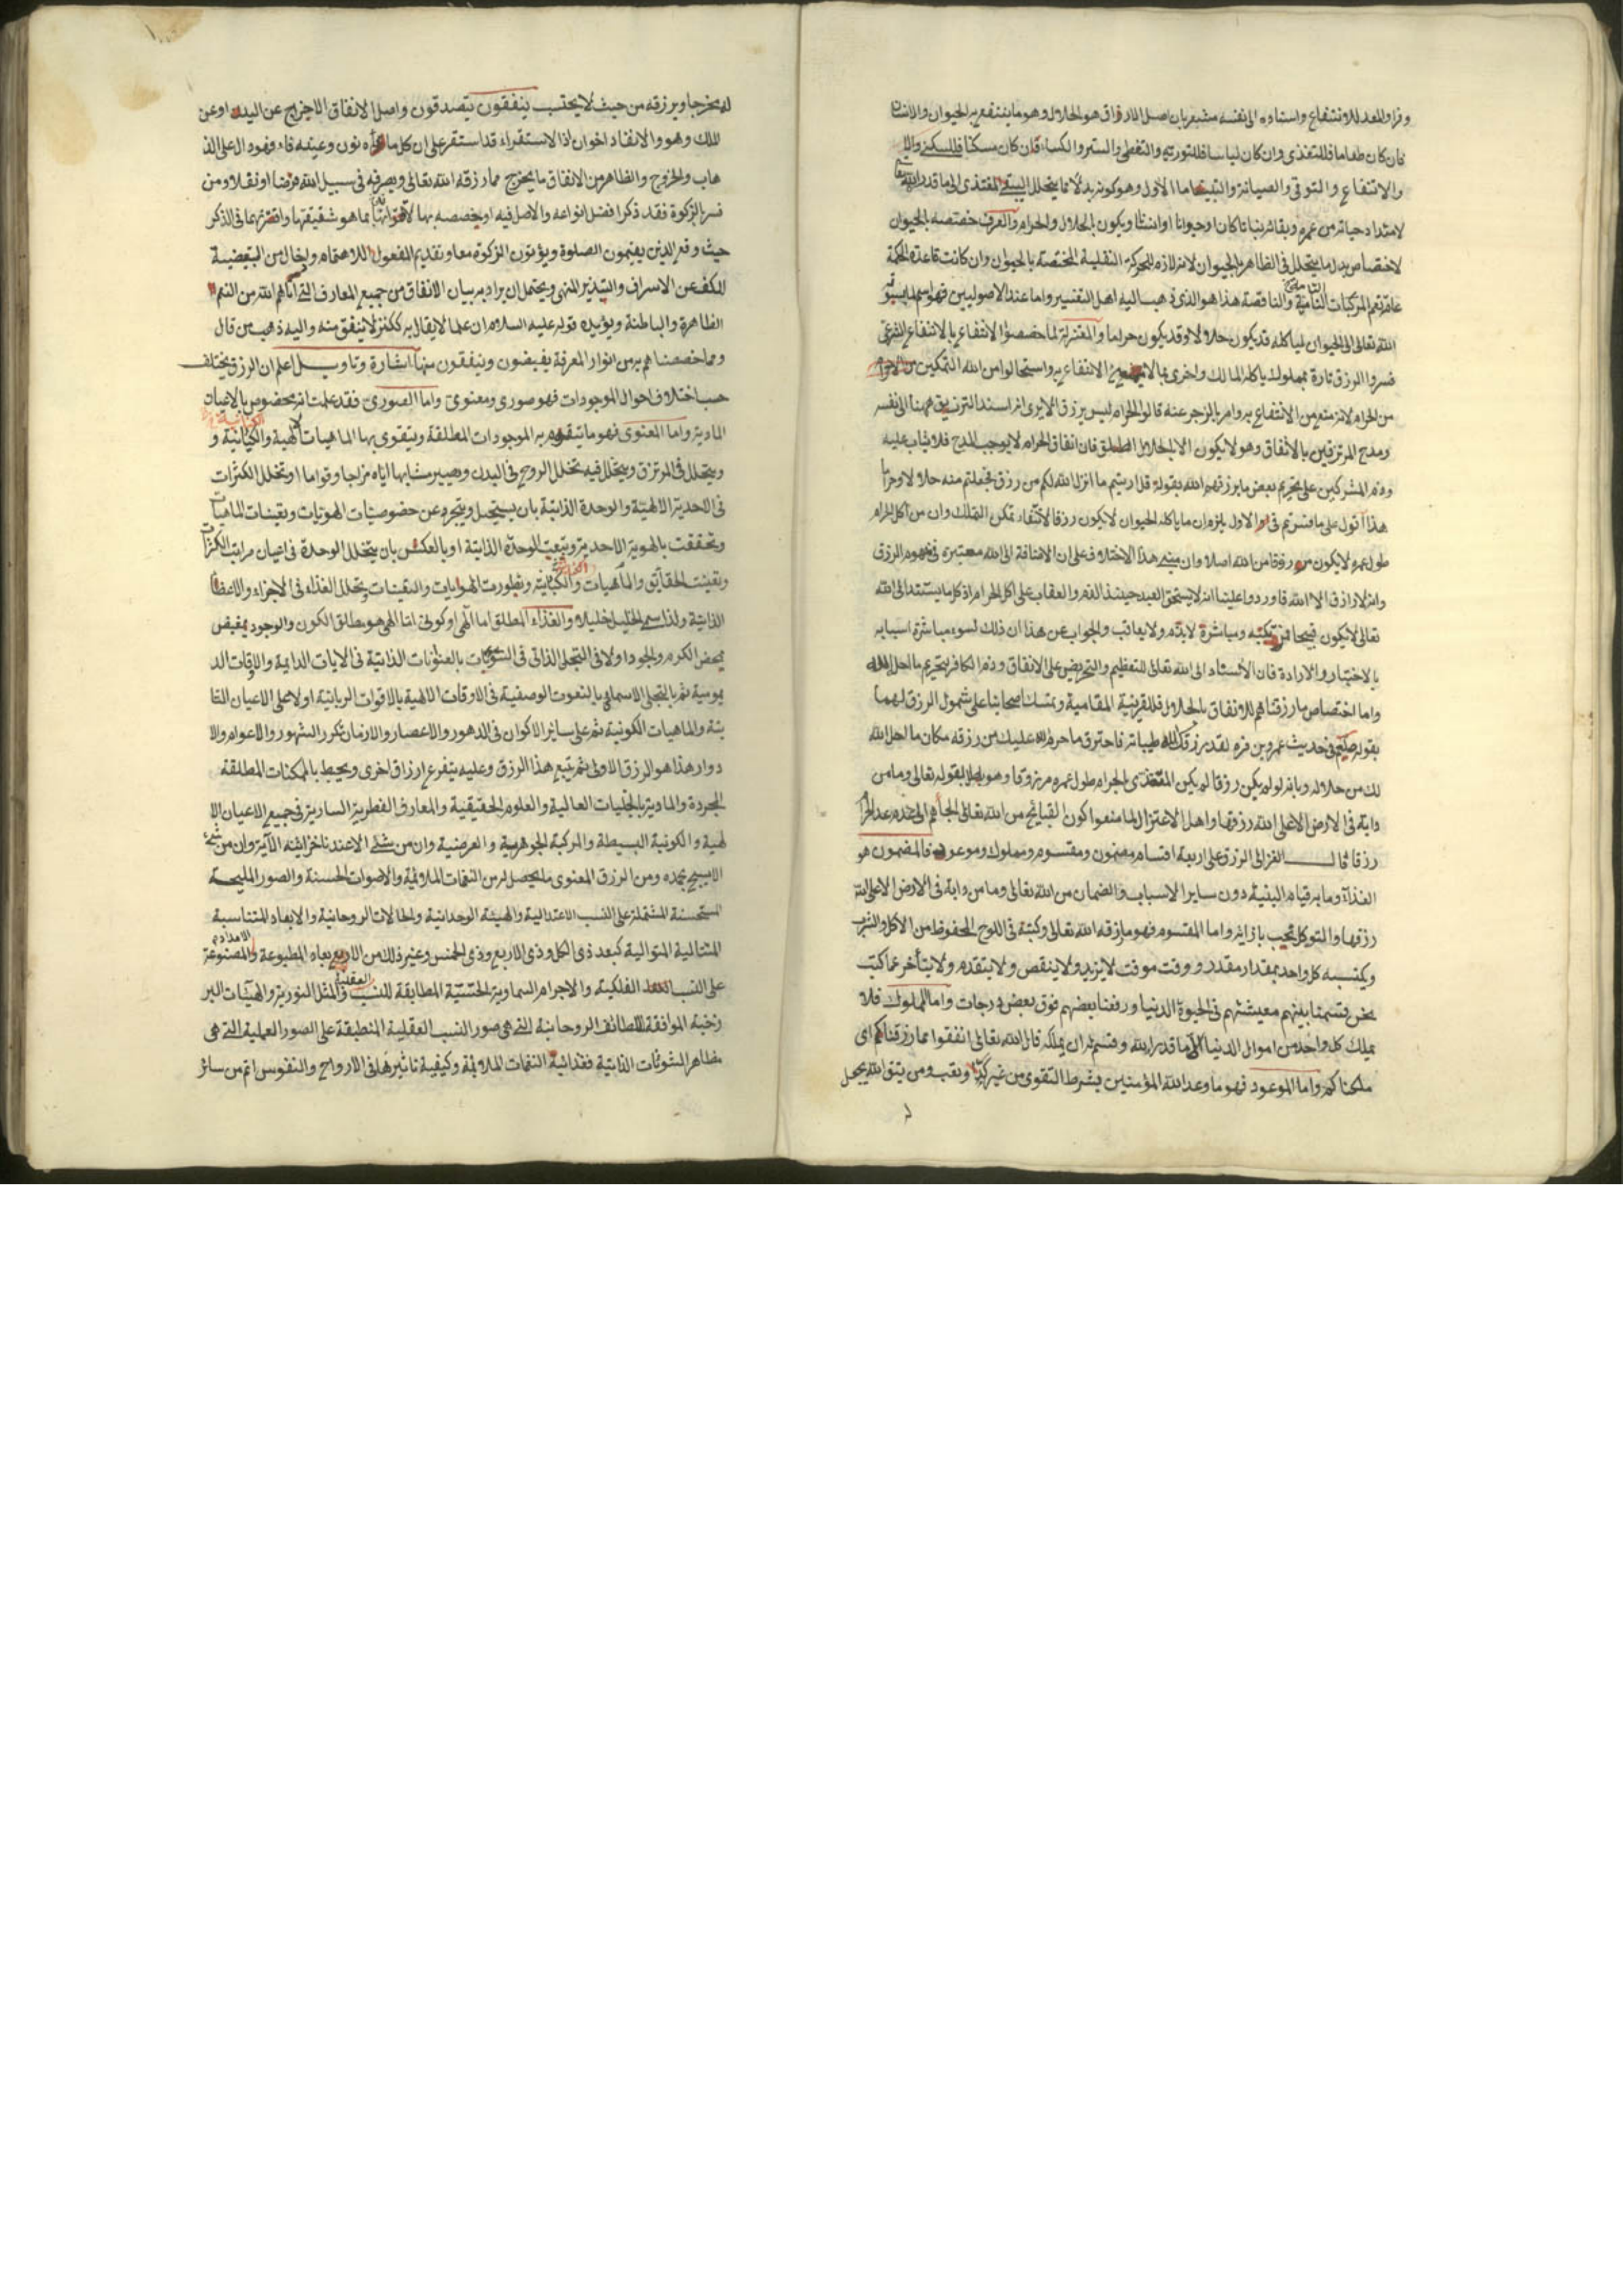 فان كان طعاما فللتغذى وان كان لباسا فللتورية والتغطى والستر والكساء فان كان سكنا فللسكنى
والانتفاع والتوقى والصيانة اما الاول وهو كونه بدلا مما يتحلل
لامتداد حياته من عمره وبقائه نباتا كان او حيوانا او انسانا ويكون بالحلال والحرام والعرف خصصه بالحيوان
لاختصاص بدل ما يتحلل فى الظاهر بالحيوان لانه لازم للحركة النقلية المختصة بالحيوان وان كانت قاعدة الحكمة
المركبات النامية والناقصة هذا هو الذى ذهب اليه اهل التفسير واما عند الاصوليين فهو اسم لما يسوقه
الله تعالى الى الحيوان لياكله قد يكون حلالا وقد يكون حراما والمعتزلة لما خصصوا الانتفاع بالانتفاع الشرعى
فسروا الرزق تارة بمملوك ياكله المالك واخرى بما لا يمنع الانتفاع به واستحالوا من الله التمكين من الحرام
من الحرام لانه منع من الانتفاع به وامر بالزجر عنه قالوا الحرام ليس برزق الا يرى انه اسند الترزيق ههنا الى نفسه
ومدح المرتزقين بالانفاق وهو لا يكون الا بالحلال المطلق فان انفاق الحرام لا يوجب المدح فلا يثاب عليه
وذم المشركين على تحريم بعض ما يرزقهم الله بقوله قل ارايتم ما انزل الله لكم من رزق فجعلتم منه حلالا وحراما
هذا اقول على ما فسرتم فى الاول يلزم ان ما ياكله الحيوان لا يكون رزقا لانتفاء تمكن التملك وان من اكل الحرام
طول عمره لا يكون مرزوقا من الله اصلا وان مبنى هذا الاختلاف على ان الاضافة الى الله معتبرة فى مفهوم الرزق
وانه لا رازق الا الله فاوردوا علينا انه لا يستحق العبد حينئذ الذم والعقاب على اكل الحرام اذ كل ما يستند الى الله
تعالى لا يكون قبيحا ومباشرة لا يذم ولا يعاقب والجواب عن هذا ان ذلك لسوء مباشرة اسبابه
بالاختيار والارادة فان الاسناد الى الله تعالى للتعظيم والتحريض على الانفاق وذم الكافر بتحريم ما احل الله
واما اختصاص ما رزقناهم للانفاق بالحلال فللقرينة المقامية وتمسك اصحابنا على شمول الرزق لهما
بقوله صلعم فى حديث عمرو بن قرة لقد رزقك الله طيبا فاخترت ما حرم الله عليك من رزقه مكان ما احل الله
لك من حلاله وبانه لو لم يكن رزقا لم يكن المتغذى بالحرام طول عمره مرزوقا وهو باطل بقوله تعالى وما من
دابة فى الارض الا على الله رزقها واهل الاعتزال لما منعوا كون القبائح من الله تعالى
رزقا قال الغزالى الرزق على اربعة اقسام مضمون ومقسوم ومملوك وموعود فالمضمون هو
الغذاء وما به قيام البنية دون ساير الاسباب والضمان من الله تعالى وما من دابة فى الارض الا على الله
رزقها والتوكل يجب بازائه واما المقسوم فهو ما رزقه الله تعالى وكتبه فى اللوح المحفوظ من الاكل والشرب
ويكتسبه كل واحد بمقدار مقدر ووقت موقت لا يزيد ولا ينقص ولا يتقدم ولا يتأخر عما كتب
نحن قسمنا بينهم معيشتهم فى الحيوة الدنيا ورفعنا بعضهم فوق بعض درجات واما المملوك فلا
يملك كل واحد من اموال الدنيا الا ما قدر الله وقسم له ان يملكه قال الله تعالى انفقوا مما رزقناكم اى
ملكناكم واما الموعود فهو ما وعد الله المؤمنين بشرط التقوى من غير كد وتعب ومن يتق الله يجعل
له مخرجا ويرزقه من حيث لا يحتسب ينفقون يتصدقون واصل الانفاق الاخراج عن اليد او عن
الملك وهو والانفاد اخوان اذ الاستقراء قد استقر على ان كل ما فاؤه نون وعينه فاء فهو دال على الذ
هاب والخروج والظاهر من الانفاق ما يخرج مما رزقه الله تعالى ويصرفه فى سبيل الله فرضا او نفلا ومن
فسر بالزكوة فقد ذكر افضل انواعه والاصل فيه او خصصه بها لاقترانها بما هو شقيقتها وافترانهما فى الذكر
حيث وقع الذين يقيمون الصلوة ويؤتون الزكوة معا وتقديم المفعول للاهتمام وادخال من التبعيضية
للكف عن الاسراف والتبذير المنهى ويحتمل ان يراد به بيان الانفاق من جميع المعارف التى اتاهم الله من النعم
الظاهرة والباطنة ويؤيده قوله عليه السلام ان علما لا يقال به ككنز لا ينفق منه واليه ذهب من قال
ومما خصصناهم به من انوار المعرفة يفيضون وينفقون منها اشارة وتاويل اعلم ان الرزق يختلف
حسب اختلاف احوال الموجودات فهو صورى ومعنوى واما الصورى فقد علمت انه مخصوص بالاعيان
المادية واما المعنوى فهو ما يتقوم به الموجودات المطلقة ويتقوى بها الماهيات الالهية والكيانية و
ويتحلل فى المرتزق ويتخلل فيه تخلل الروح فى البدن ويصير مشابها اياه مزاجا وقواما او تخلل الكثرات
فى الاحدية الالهية والوحدة الذاتية بان يستحيل ويتجرد عن خصوصيات الهويات وتعينات الماهيات
وتحققت بالهوية الاحدية وتبعت الوحدة الذاتية او بالعكس بان يتخلل الوحدة فى اعيان مراتب الكثرات
وتعينت الحقائق والماهيات والكيانية وتطورت الهوايات والتعينات وتخلل الغذاء فى الاجزاء والاعضاء
الذاتية ولذا سمى الخليل خليلا والغذاء المطلق اما الهى او كونى اما الهى هو مطلق الكون والوجود
بمحض الكرم والجود اولا فى التجلى الذاتى فى الشؤنات بالعنوانات الذاتية فى الايات الدايمة والاوقات الد
يومية ثم بالتجلى الاسمائى بالنعوت الوصفية فى الاوقات الالهية بالاقوات الربانية اولا على الاعيان الثا
بتة والماهيات الكونية ثم على سائر الاكوان فى الدهور والاعصار والازمان تكرر الشهور والاعوام والا
دوار هذا هو الرزق الاولى ثم تبع هذا الرزق وعليه يتفرع ارزاق اخرى ويحيط بالممكنات المطلقة
المجردة والمادية بالتجليات العالية والعلوم الحقيقية والمعارف الفطرية السارية فى جميع الاعيان الا
لهية والكونية البسيطة والمركبة الجوهرية والعرضية وان من شئ الا عندنا خزائنه الآية وان من شئ
الا يسبح بحمده ومن الرزق المعنوى ما يحصل له من النغمات الملائمة والاصوات الحسنة والصور المليحة
المستحسنة المشتملة على النسب الاعتدالية والهيئة الوجدانية والحالات الروحانية والابعاد المتناسبة
المتتالية المتوالية كبعد ذى الكل وذى الاربع وذى الخمس وغير ذلك من المطبوعة والمصنوعة
على النسب الفلكية والاجرام السماوية الحسية المطابقة للنسب العقلية والمثل النورية والهيآت البر
زخية الموافقة للطائف الروحانية التى هى صور النسب العقلية المنطبقة على الصور العملية التى هى
مظاهر الشئونات الذاتية فغذائية النغمات الملائمة وكيفية تاثيرها فى الارواح والنفوس اتم من سائر